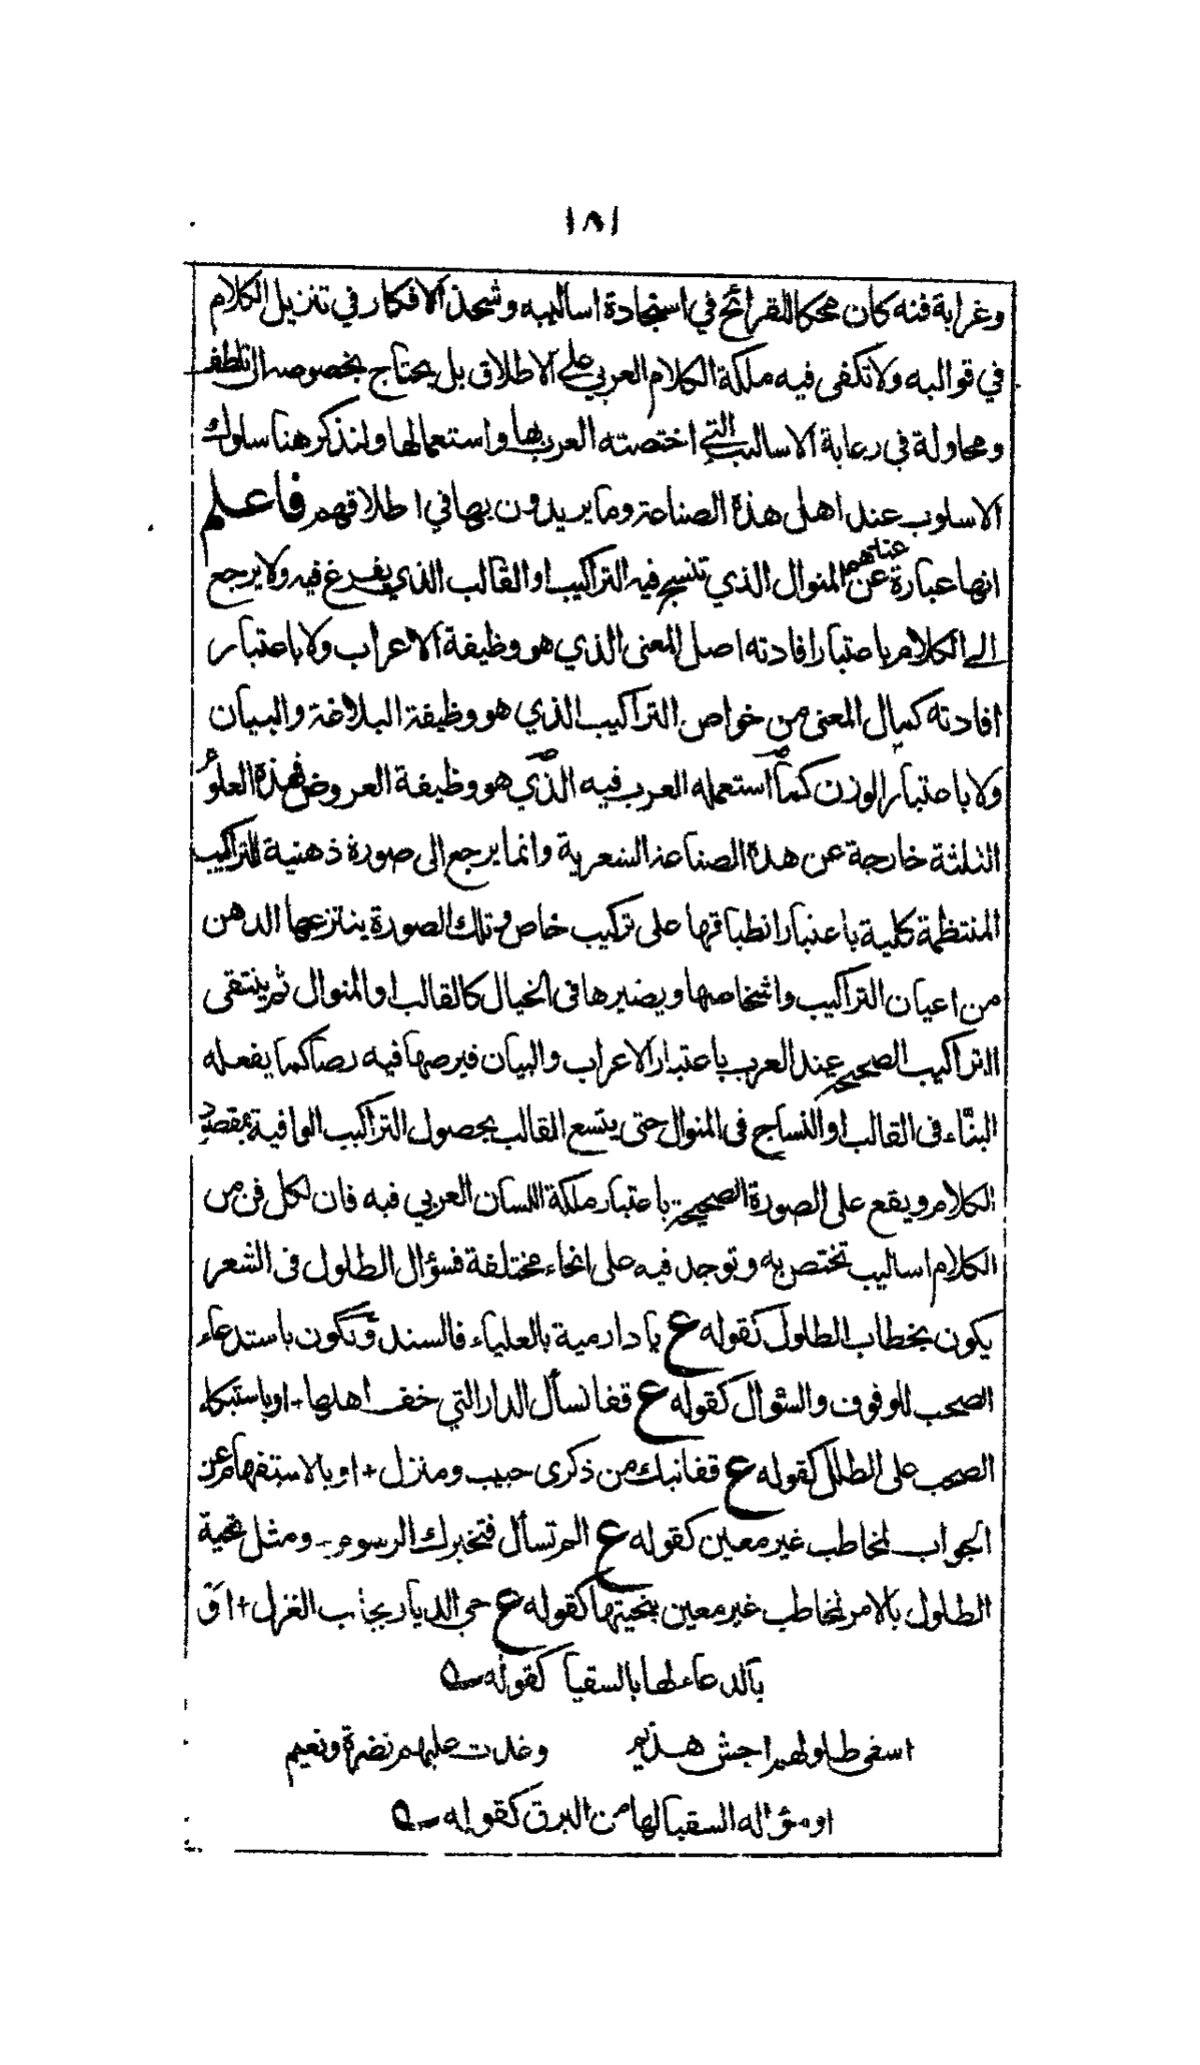 ١٨١
وغرابة فنه كان محكا للقرائح في استجادة اساليبه وشحذ الافكار في تنزيل الكلام
في قوالبه ولا تكفى فيه ملكة الكلام العربي على الاطلاق بل يحتاج بخصوصه الى تلطف
ومحاولة في رعاية الاساليب التي اختصته العرب بها واستعمالها ولنذكر هنا سلوك
الاسلوب عند اهل هذه الصناعة وما يريدون بها في اطلاقهم فاعلم
انها عبارة عندهم عن المنوال الذي تنسج فيه التراكيب او القالب الذي يفرغ فيه ولا يرجع
الى الكلام باعتبار افادته اصل المعنى الذي هو وظيفة الاعراب ولا باعتبار
افادته كمال المعنى من خواص التراكيب الذي هو وظيفة البلاغة والبيان
ولا باعتبار الوزن كما استعمله العرب فيه الذي هو وظيفة العروض فهذه العلوم
الثلثة خارجة عن هذه الصناعة الشعرية وانما يرجع الى صورة ذهنية للتراكيب
المنتظمة كلية باعتبار انطباقها على تركيب خاص وتلك الصورة ينتزعها الذهن
من اعيان التراكيب واشخاصها ويصيرها في الخيال كالقالب او المنوال ثم ينتقى
التراكيب الصحيحة عند العرب باعتبار الاعراب والبيان فيرصها فيه رصا كما يفعله
البنّاء فى القالب او النساج فى المنوال حتى يتسع القالب بحصول التراكيب الوافية بمقصود
الكلام ويقع على الصورة الصحيحة باعتبار ملكة اللسان العربي فيه فان لكل فن من
الكلام اساليب تختص به وتوجد فيه على انحاء مختلفة فسؤال الطلول فى الشعر
يكون بخطاب الطلول كقوله ع يا دار مية بالعلياء فالسند وتكون باستدعاء
الصحب للوقوف والسؤال كقوله ع قفا نسأل الدار التي خف اهلها- او باستبكاء
الصحب على الطلل كقوله ع قفا نبك من ذكرى حبيب ومنزل + او بالاستفهام عن
الجواب لمخاطب غير معين كقوله ع الم تسأل فتخبرك الرسوم- ومثل تحية
الطلول بالامر لمخاطب غير معين بتحيتها كقوله ع حي الديار بجانب الغزل + او
بالدعاء لها بالسقيا كقوله ه
اسقى طلولهم اجش هذيم وغدت عليهم نضرة ونعيم
او سؤاله السقيا لها من البرق كقوله ه